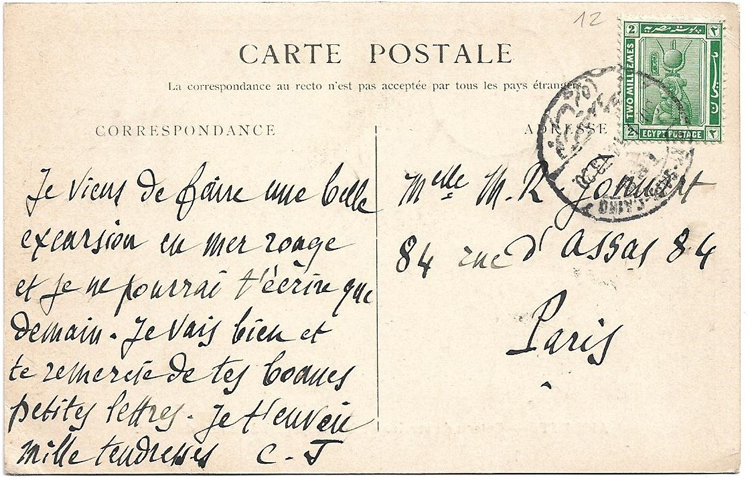 12
CARTE POSTALE
La correspondance au recto n'est pas acceptée par tous les pays étrangers
CORRESPONDANCE
ADRESSE
Je viens de faire une belle
excursion en mer rouge
et je ne pourrai t'écrire que
demain. Je vais bien et
te remercie de tes bonnes
petites lettres. Je t'envoie
mille tendresses C. J
Melle M. R. Jonnart
84 rue d'Assas 84
Paris
2 ٢
TWO MILLIEMES
2 EGYPT POSTAGE ٢
CAIRO